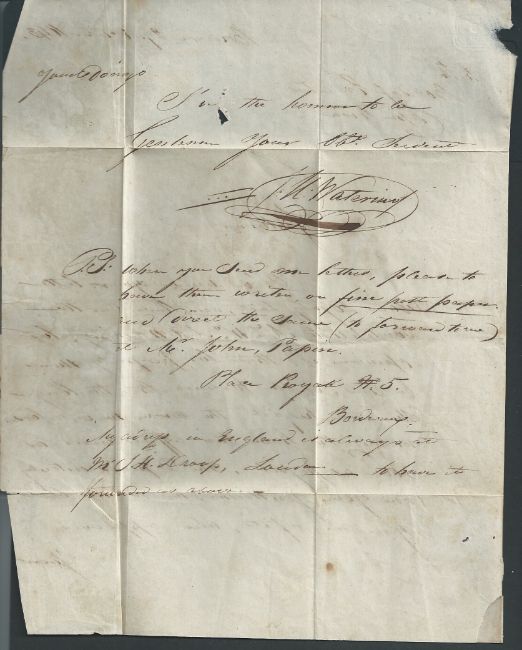 your doings
I've the honour to be
Gentlemen Your Obt. Servant
P.S. When you send me letters, please to
have them written on fine post paper.
and direct the same (to forward to me)
to Mr. John, Papin.
Place Royale #. 5.
Bordeaux.
My address in England is always at
forwarded as above.